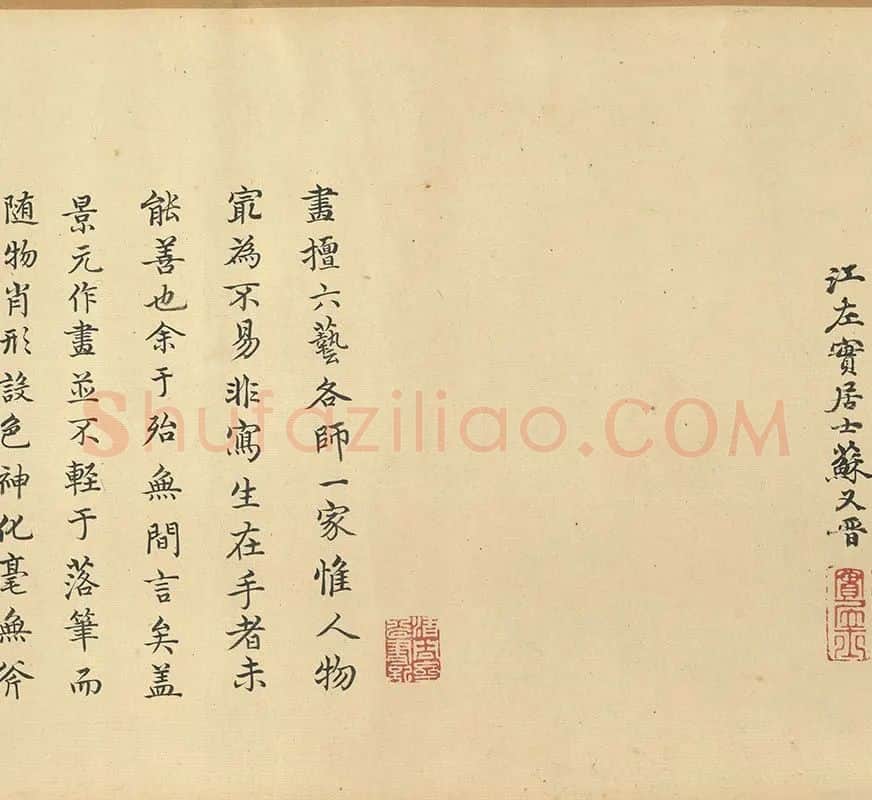 江左實居士蘇又晋
畫擅六藝各師一家惟人物
㝡為不易非寫生在手者未
能善也余于殆無間言矣盖
景元作畫並不輕于落筆而
随物肖形設色神化毫無斧
Shufaziliao.COM